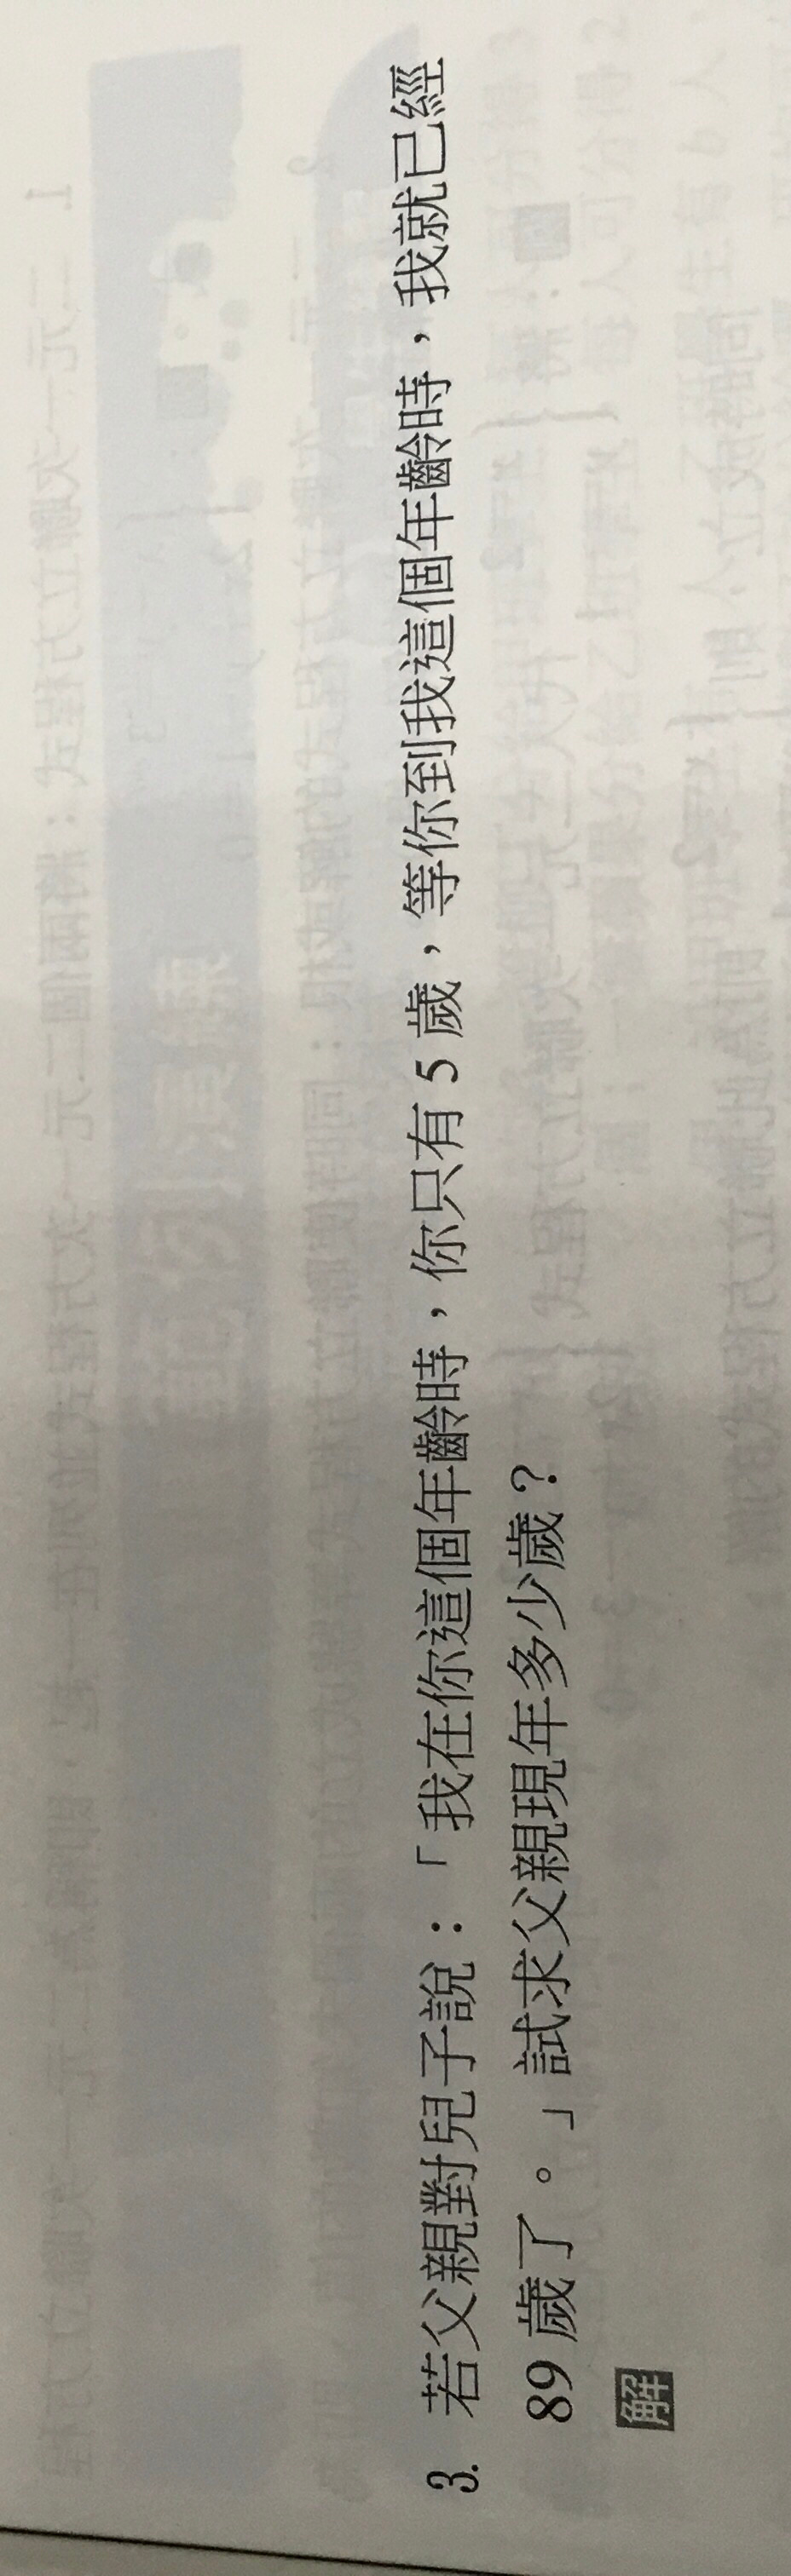 3. 若父親對兒子說：「我在你這個年齡時，你只有 5 歲，等你到我這個年齡時，我就已經
89 歲了。」試求父親現年多少歲？
解